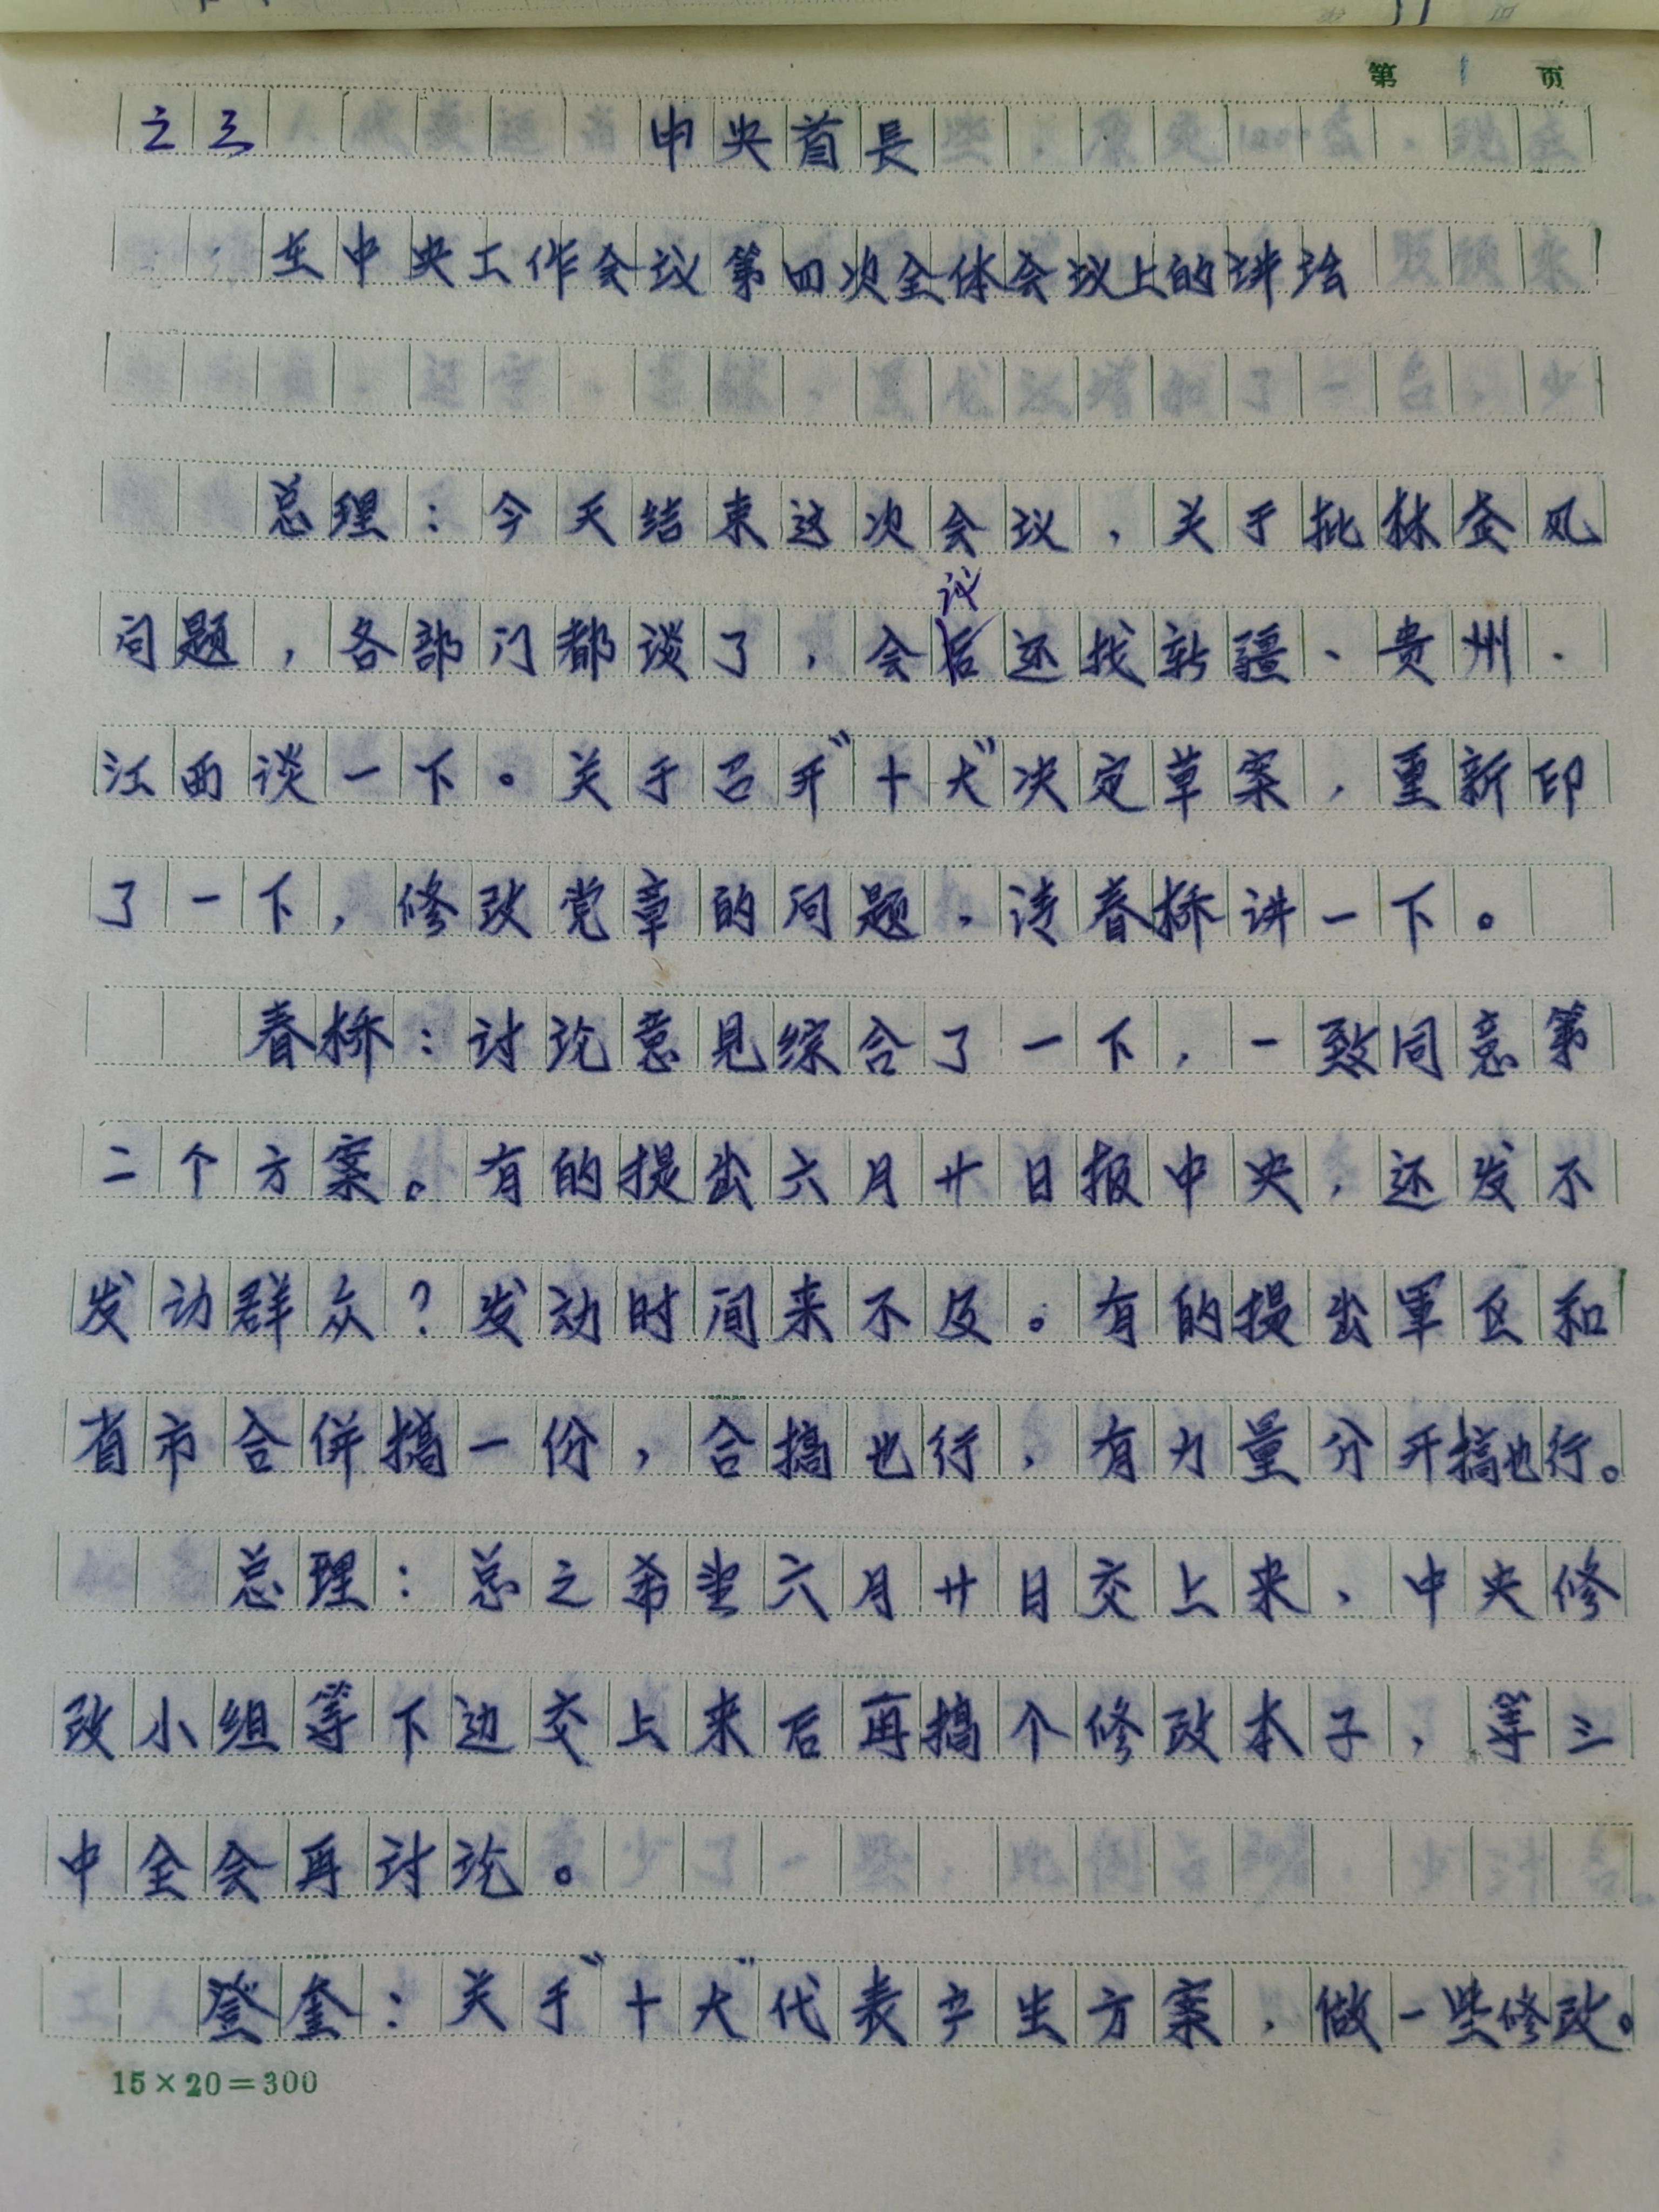 第 1 页
之三 中央首長
在中央工作会议第四次全体会议上的讲话
总理：今天结束这次会议，关于批林金风
问题，各部门都谈了，会议还找新疆、贵州、
江西谈一下。关于召开“十大”决定草案，重新印
了一下，修改党章的问题，请春桥讲一下。
春桥：讨论意见综合了一下，一致同意第
二个方案。有的提出六月廿日报中央，还发不
发动群众？发动时间来不及。有的提出军区和
省市合併搞一份，合搞也行，有力量分开搞也行。
总理：总之希望六月廿日交上来，中央修
改小组等下边交上来后再搞个修改本子，等三
中全会再讨论。
登奎：关于“十大”代表产出方案，做一些修改。
15×20=300